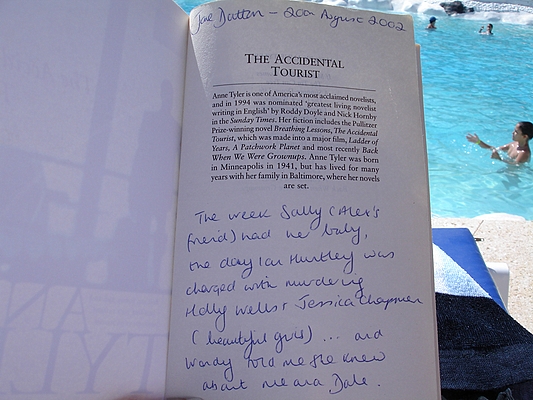 Jane Dutton - 20th August 2002
THE ACCIDENTAL
TOURIST
Anne Tyler is one of America's most acclaimed novelists,
and in 1994 was nominated 'greatest living novelist
writing in English' by Roddy Doyle and Nick Hornby
in the Sunday Times. Her fiction includes the Pulitzer
Prize-winning novel Breathing Lessons, The Accidental
Tourist, which was made into a major film, Ladder of
Years, A Patchwork Planet and most recently Back
When We Were Grownups. Anne Tyler was born
in Minneapolis in 1941, but has lived for many
years with her family in Baltimore, where her novels
are set.
The week Sally (Alex's
friend) had her baby,
the day Ian Huntley was
charged with murdering
Holly Wells + Jessica Chapman
(beautiful girls) ... and
Wendy told me she knew
about me and Dale.